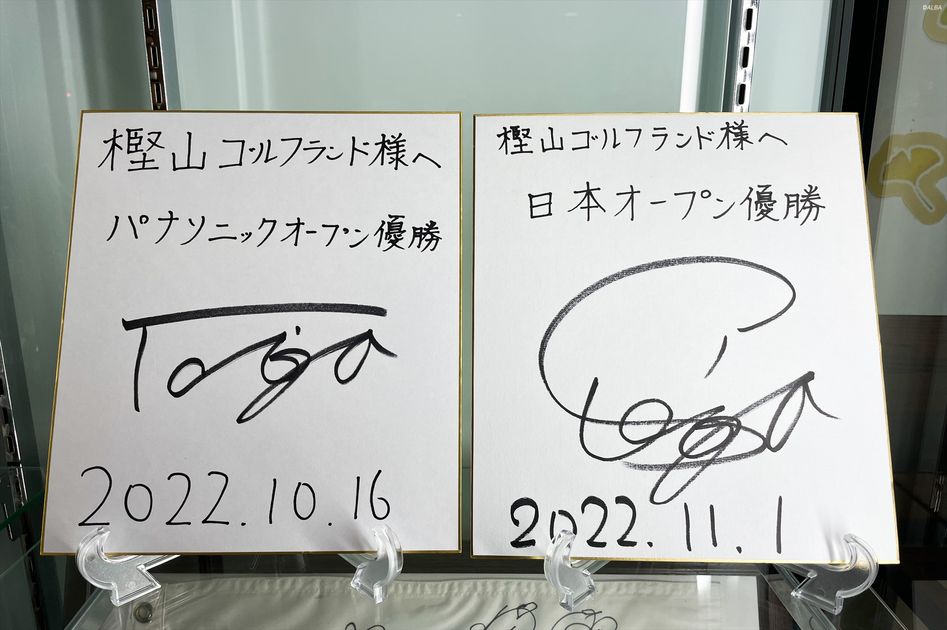 樫山ゴルフランド様へ
パナソニックオープン優勝
Taiga
2022.10.16
樫山ゴルフランド様へ
日本オープン優勝
2022.11.1
©ALBA